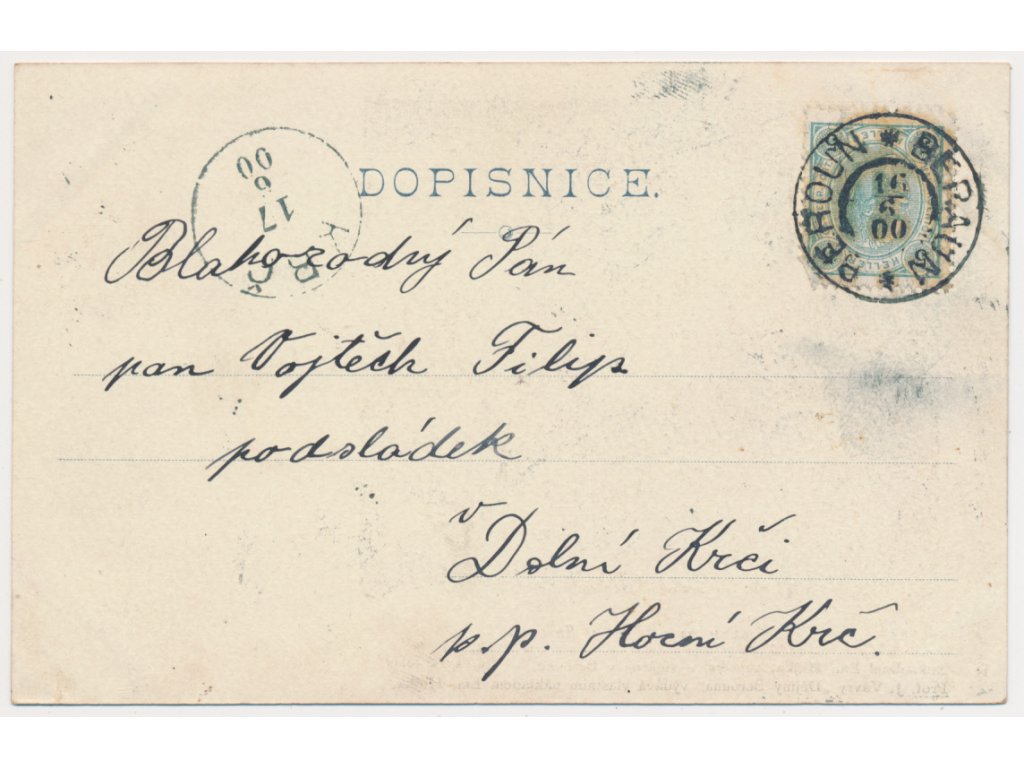 DOPISNICE.
BEROUN * BERAUN *
16
00
KRČ
17
6
00
Blahorodný Pán
pan Vojtěch Filip
podsládek
v Dolní Krči
p.p. Horní Krč.